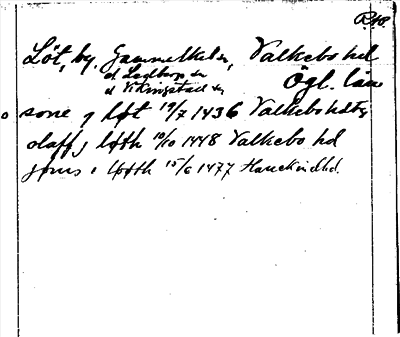 R. 48.
Löt, by, Gammelkils sn, Valkebo hd
el Ledberga sn Ögl. län
el Vikingstad sn
o sone j løt 19/7 1436 Valkebo hdtg
olaff j løth 10/10 1448 Valkebo hd
jøns i løøth 15/6 1477 Hanekindhd.